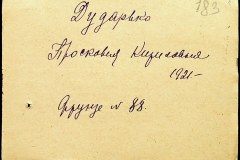 183
Дударько
Просковия Кириловня
1921-
Фрунзе № 88.